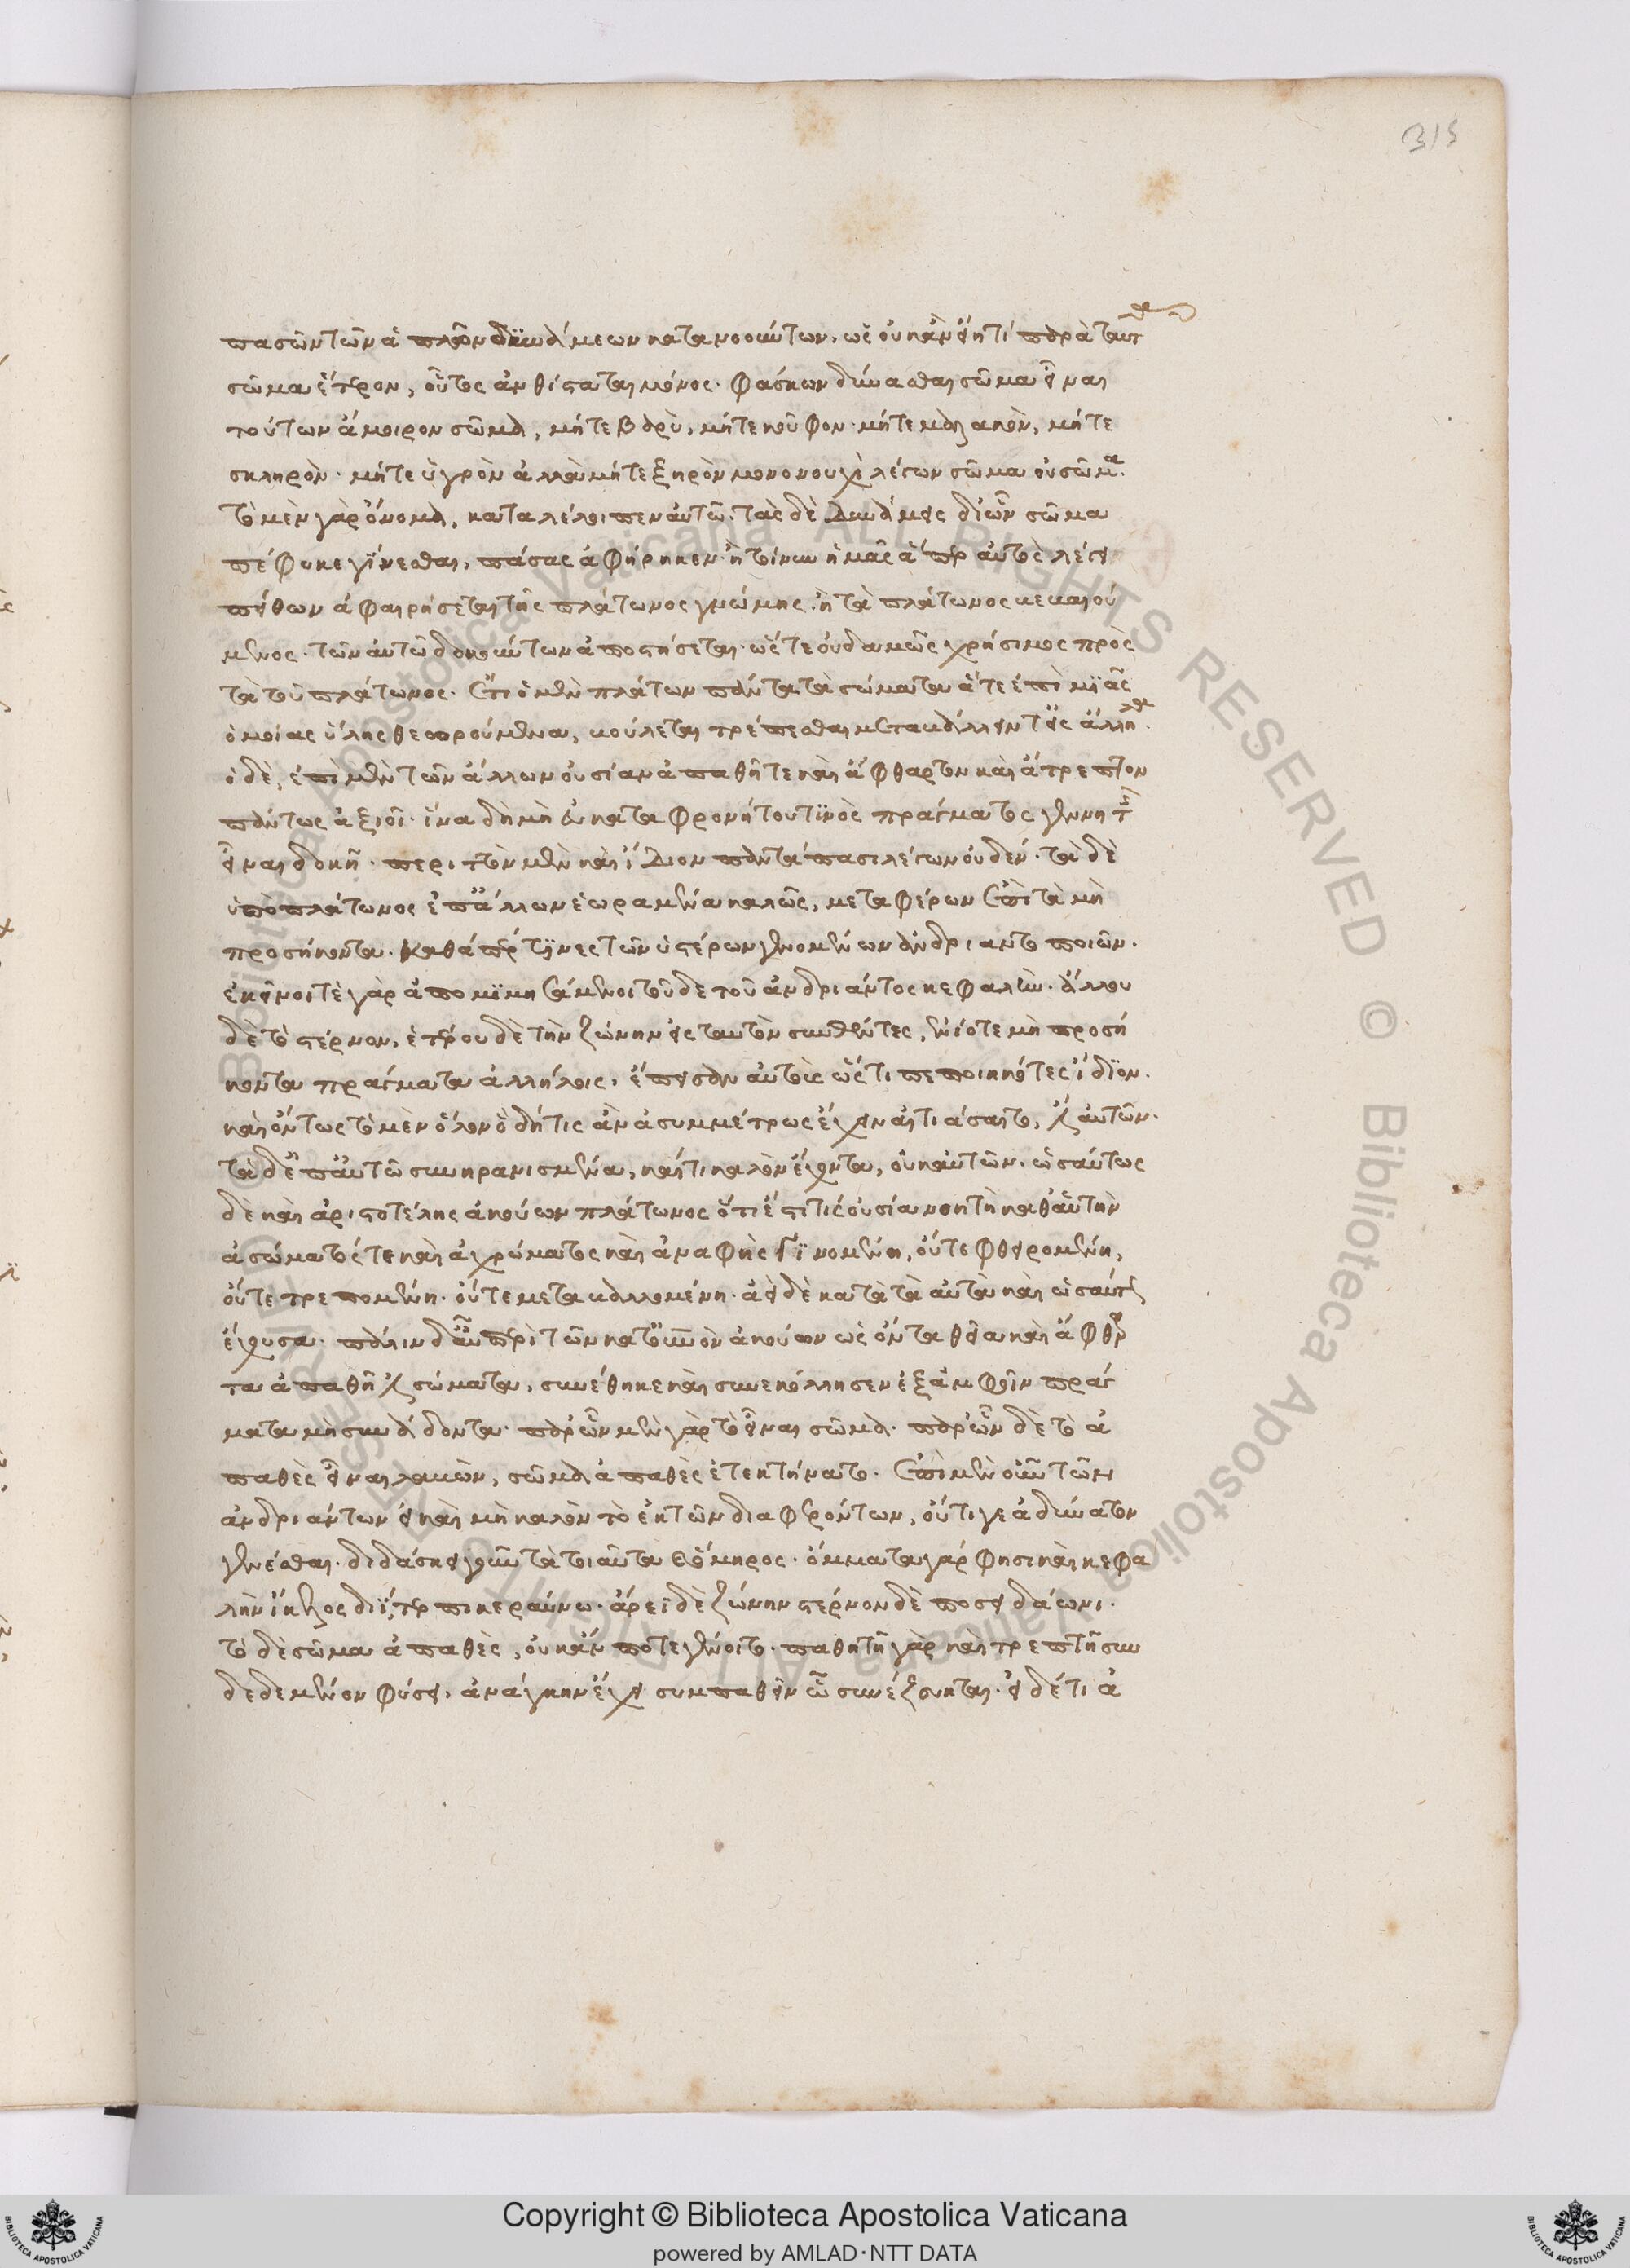 315
πασῶν τῶν ἁπλῶν δυνάμεων κατανοούντων, ὡς οὐκ ἂν εἴη τι παρὰ ταῦτα
σῶμα ἕτερον, οὗτος ἀνθίσταται μόνος. φάσκων δύνασθαι σῶμα εἶναι
τούτων ἄμοιρον σῶμα, μήτε βαρὺ, μήτε κοῦφον. μήτε μαλακὸν, μήτε
σκληρὸν. μήτε ὑγρὸν ἀλλὰ μήτε ξηρὸν μονονουχὶ λέγων σῶμα οὐ σῶμα.
τὸ μὲν γὰρ ὄνομα, καταλέλοιπεν αὐτῶ. τὰς δὲ δυνάμεις δι ὧν σῶμα
πέφυκε γΐνεσθαι, πάσας ἀφήρηκεν. ἢ τοίνυν ἡμᾶς ἅπερ αὐτὸς λέγει
πείθων ἀφαιρήσεται τῆς πλάτωνος γνώμης. ἢ τὰ πλάτωνος
τῶν αὐτῶ δοκούντων ἀποστήσεται. ὥστε οὐδαμῶς χρήσιμος πρὸς
τὰ τοῦ πλάτωνος. ἔτι ὁ μὲν πλάτων πάντα τὰ σώματα ἅτε ἐπὶ μϊᾶς
ὁμοίας ὕλης θεωρούμενα, βούλεται τρέπεσθαι μεταβάλλειν τ εἰς ἄλληλα.
ὁ δὲ, ἐπὶ μὲν τῶν ἄλλων οὐσίαν ἀπαθῆ τε καὶ ἄφθαρτον καὶ ἄτρεπτον
πάντως ἀξιοῖ. ἵνα δὴ μὴ εὐκαταφρονήτου τϊνὸς πράγματος γεννητὴς
εἶναι δοκῆ. περιττὸν μὲν καὶ ἴδιον παντάπασι λέγων οὐδέν. τὰ δὲ
ὑπὸ πλάτωνος ἐπ ἄλλων ἑωραμένα καλῶς, μεταφέρων ἐπὶ τὰ μὴ
προσήκοντα. καθάπερ τϊνες τῶν ὑστέρων γενομένων ἀνδριαντοποιῶν.
ἐκεῖνοι τὲ γὰρ ἀπομϊμησάμενοι τοῦδε τοῦ ἀνδριάντος κεφαλὴν. ἄλλου
δὲ τὸ στέρνον, ἑτέρου δὲ τὴν ζώνην εἰς ταυτὸν συνθέντες, ἐνίοτε μὴ προσή
κοντα πράγματα ἀλλήλοις, ἔπεισαν αὐτοὺς ὥς τι πεποιηκότες ἴδϊον.
καὶ ὄντως τὸ μὲν ὅλον ὃ δή τις ἂν ἀσυμμέτρως ἔχειν αἰτιάσαιτο, ἐξ αὐτῶν.
τὰ δ ἐπ αὐτῶ συνηρανισμένα, καί τι καλὸν ἔχοντα, οὐκ αὐτῶν. ὡσαύτως
δὲ καὶ ἀριστοτέλης ἀκούων πλάτωνος ὅτι ἐστί τις οὐσία νοητὴ καθ αὑτὴν
ἀσώματός τε καὶ ἀχρώματος καὶ ἀναφὴς γϊνομένη, οὔτε φθειρομένη,
οὔτε τρεπομένη. οὔτε μεταβαλλομένη. ἀεὶ δὲ κατὰ τὰ αὐτὰ καὶ ὡσαύτως
ἔχουσα. πάλιν δ αὖ περὶ τῶν κατ οὐρανὸν ἀκούων ὡς ὄντα θεῖα καὶ ἄφθαρ
τα ἀπαθῆ ἐστι σώματα, συνέθηκε καὶ συνεκόλλησεν ἐξ ἀμφοῖν πράγ
ματα μὴ συνάδοντα. παρ ὧν μὲν γὰρ τὸ εἶναι σῶμα. παρ ὧν δὲ τὸ ἀ
παθὲς εἶναι λαβὼν, σῶμα ἀπαθὲς ἐτεκτήνατο. ἐπὶ μὲν οὖν τῶν
ἀνδριάντων εἰ καὶ μὴ καλὸν τὸ ἐκ τῶν διαφερόντων, οὔτι γε ἀδύνατον
γενέσθαι. διδάσκει γοῦν τὰ τοιαῦτα ὅμηρος. ὄμματα γάρ φησι καὶ κεφα
λὴν ἴκελος διῒ τερπικεραύνω. ἄρεϊ δὲ ζώνην στέρνον δὲ ποσειδάωνι.
τὸ δὲ σῶμα ἀπαθὲς, οὐκ ἄν ποτε γένοιτο. παθητῆ γὰρ καὶ τρεπτῆ συν
δεδεμένον φύσει, ἀνάγκην ἔχει συμπαθεῖν ὧ συνέζευκται. εἰ δέ τι ἀ